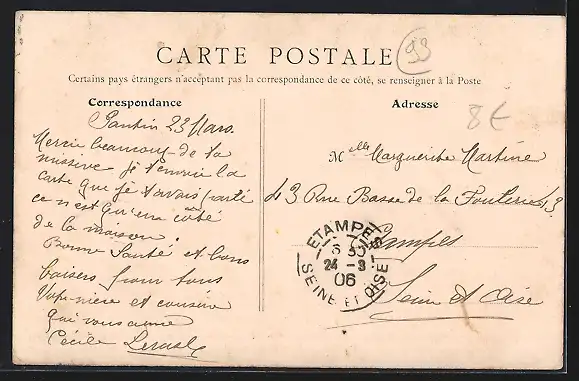 93
CARTE POSTALE
Certains pays étrangers n'acceptant pas la correspondance de ce côté, se renseigner à la Poste
Correspondance
Adresse
8€
Pantin 23 Mars
Merci beaucoup de ta
missive je t'envoie la
carte que je t'avais parlé
ce n'est qu'un côté
de la maison
Bonne Santé et bons
baisers pour tous
et cousine
qui vous aime
Cécile
Melle Marguerite Martine
43 Rue Basse de la Foulerie 43
Etampes
Seine et Oise
ETAMPES
6 30
24 - 3
06
SEINE ET OISE